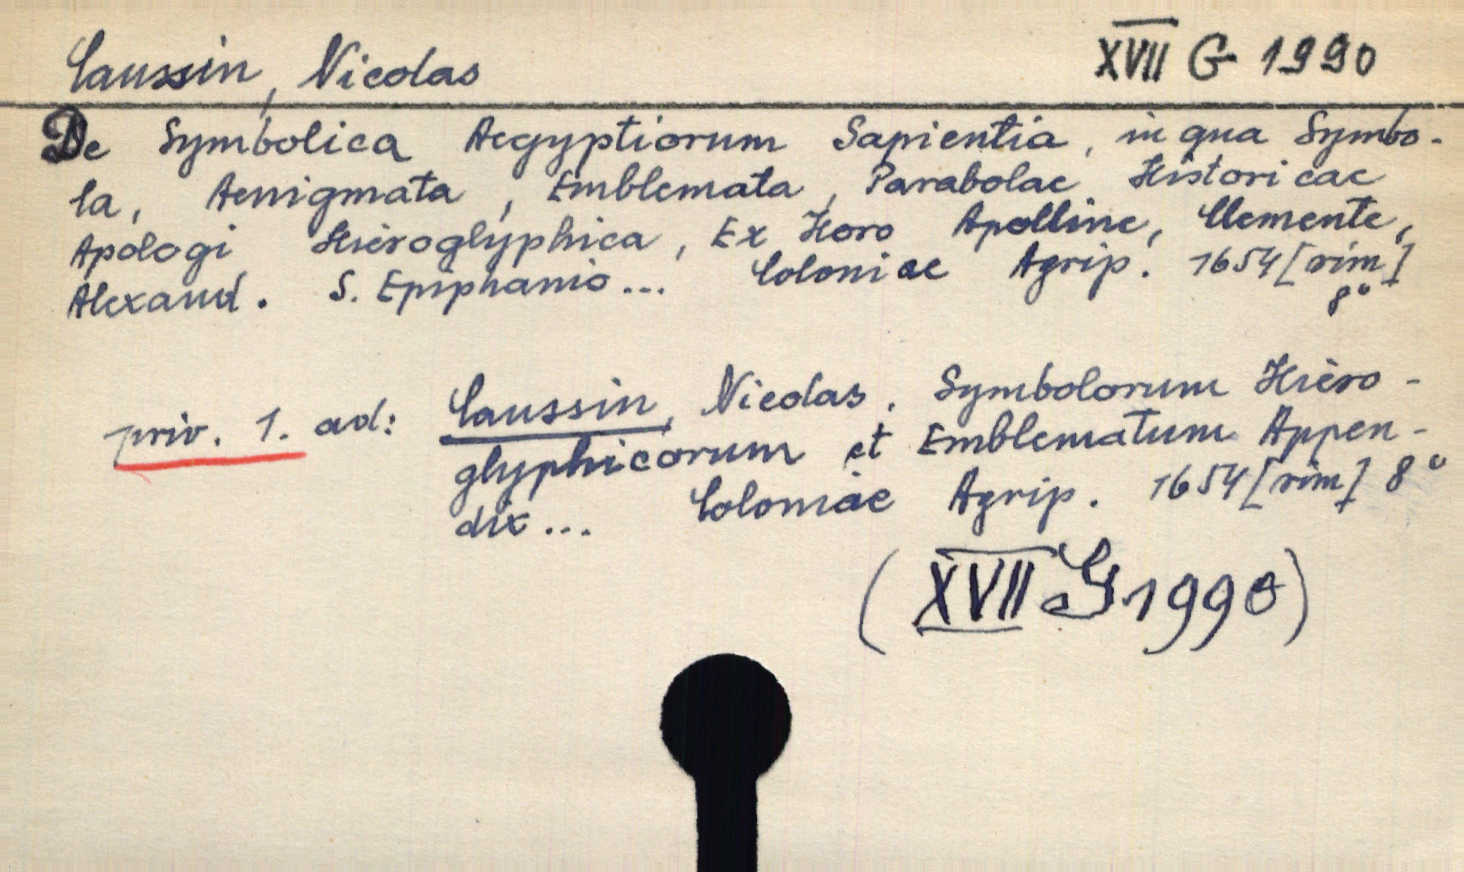 Caussin, Nicolas
XVII G 1990
De Symbolica Aegyptiorum Sapientia, in qua Symbo-
la, Aenigmata, Emblemata, Parabolae Historicae
Apologi Hieroglyphica, Ex Horo Apolline, Clemente,
Alexand. S. Epiphanio... Coloniae Agrip. 1654 [rim]
8°
priv. 1. ad: Caussin, Nicolas. Symbolorum Hiero-
glyphicorum et Emblematum Appen-
dix... Coloniae Agrip. 1654 [rim] 8°
(XVII G 1990)